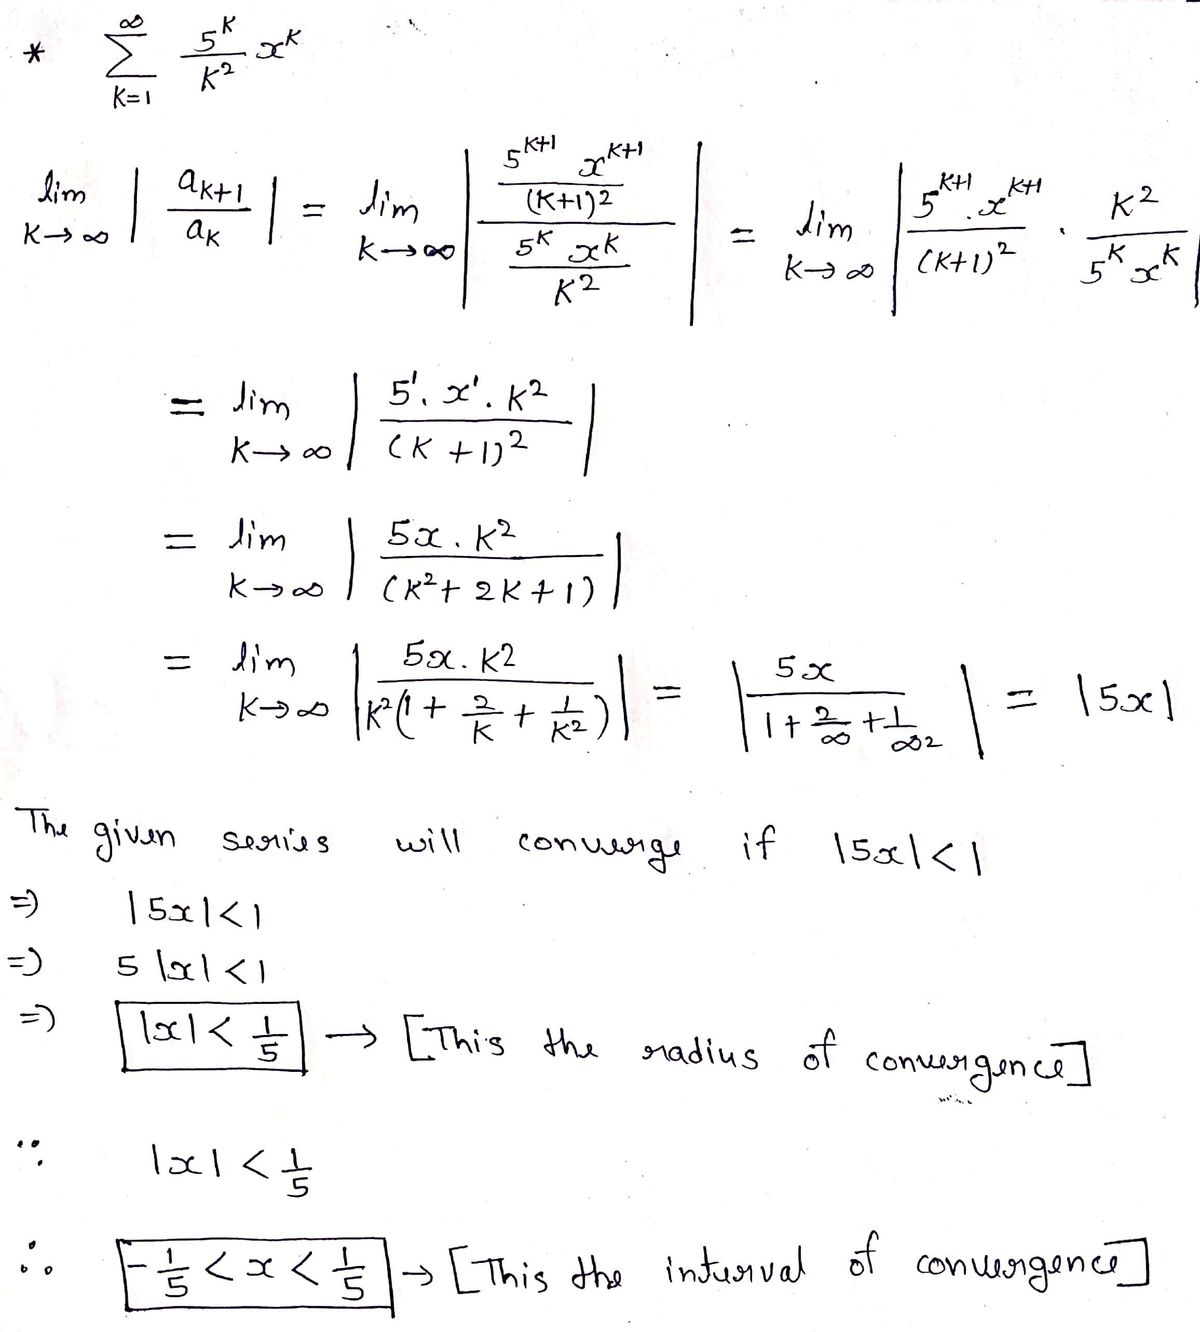 * ∞ ∑ K=1 5^K / K^2 x^K
lim K→∞ | a_{K+1} / a_K | = lim K→∞ | (5^{K+1} x^{K+1} / (K+1)^2) / (5^K x^K / K^2) | = lim K→∞ | 5^{K+1} . x^{K+1} / (K+1)^2 · K^2 / 5^K x^K |
= lim K→∞ | 5^1 . x^1 . K^2 / (K+1)^2 |
= lim K→∞ | 5x . K^2 / (K^2 + 2K + 1) |
= lim K→∞ | 5x . K^2 / K^2(1 + 2/K + 1/K^2) | = | 5x / 1 + 2/∞ + 1/∞2 | = |5x|
The given series will converge if |5x| < 1
⇒ |5x| < 1
⇒ 5 |x| < 1
⇒ |x| < 1/5 → [This the radius of convergence]
∵ |x| < 1/5
∴ -1/5 < x < 1/5 → [This the interval of convergence]